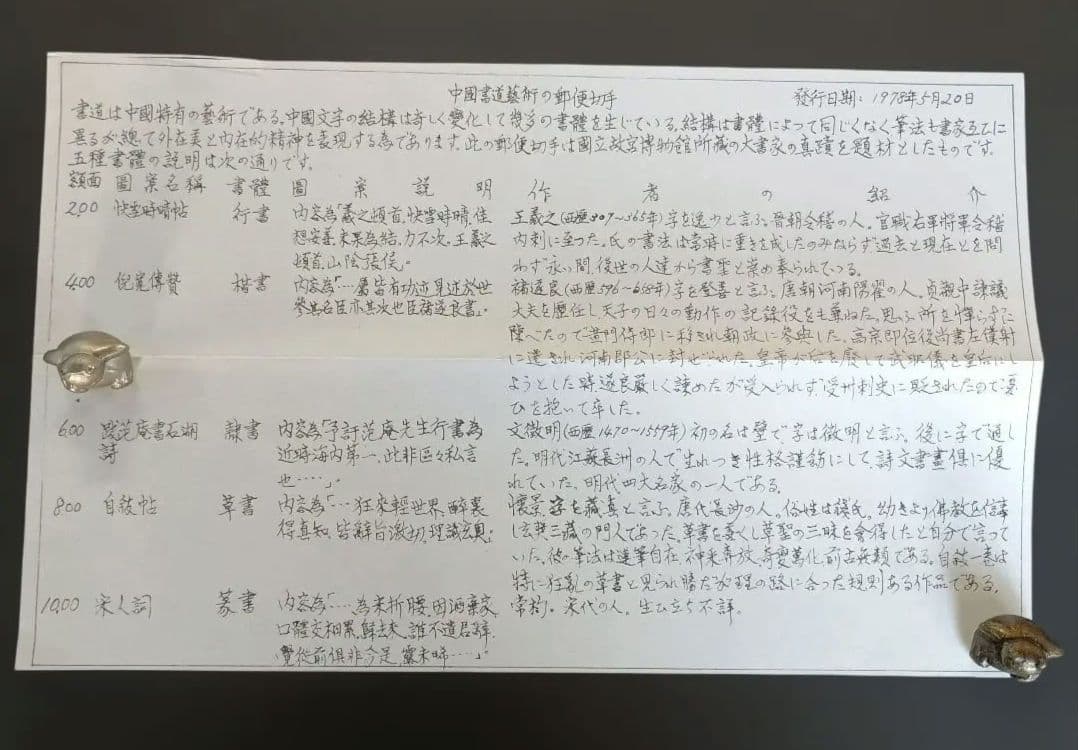 中國書道藝術の郵便切手 發行日期：1978年5月20日
書道は中國特有の藝術である。中國文字の結構は等しく變化して幾多の書體を生じている。結構は書體によって同じくなく筆法も書家互てに
異るが總て外在美と內在的精神を表現する為であります。此の郵便切手は國立故宮博物館所蔵の大書家の真蹟を題材としたものです。
五種書體の説明は次の通りです。
額面 圖案名稱 書體 圖案説明 作者の紹介
2.00 快雪時晴帖 行書 內容為「羲之頓首、快雪時晴、佳
想安善、未果為結、力不次、王羲之
頓首、山陰張侯。
王羲之(西歷307～365年)字を逸少と言ふ。晉朝會稽の人。官職右軍將軍會稽
內刺に至った。氏の書法は當時に重きを成したのみならず過去と現在とを問
わず永い間、後世の人達から書聖と崇め奉られている。
4.00 倪寬傳贊 楷書 內容為「…屬皆有功迹見述於世
參其名臣亦其次也臣褚遂良書」。
褚遂良(西歷596～658年)字を登善と言ふ。唐朝河南陽翟の人。貞觀中諫議
大夫を歷任し天子の日々の動作の記録役をも兼ねた。思ふ所を憚らずに
陳べたので黃門侍郎に移され朝政に參與した。高宗即位後尚書左僕射
に遷され河南郡公に封ぜられた。皇帝が后を廢して武昭儀を皇后にし
ようとした時、遂良厳しく諫めたが受入られず愛州刺史に貶されたので憂
ひを抱いて卒した。
6.00 跋范庵書石湖
詩 隸書 內容為「予評范庵先生行書為
近時海內第一、此非區々私言
也……」
文徵明(西歷1470～1559年)初の名は壁で字は徵明と言ふ。後に字で通し
た。明代江蘇長洲の人で生れつき性格謹飭にして、詩文書畫俱に優
れていた。明代四大名家の一人である。
8.00 自敍帖 草書 內容為「…狂來輕世界、醉裏
得真知、皆辭旨激切、理識玄奧」。
懷素 字を藏真と言ふ。唐代長沙の人。俗姓は錢氏。幼きより佛教を信奉
し玄奘三藏の門人であった。草書を善くし草聖の三昧を會得したと自分で言って
いた。彼の筆法は運筆自在、神采奔放、奇變萬化、前古無類である。自敍一卷は
特に狂亂の草書と見られ勝だが理の路に合った規則ある作品である。
10.00 宋人詞 篆書 內容為「…為米折腰、因酒棄家、
口體交相累、歸去來、誰不遣君歸、
覺從前俱非今是、露未晞……」。
常杓。宋代の人。生ひ立ち不詳。